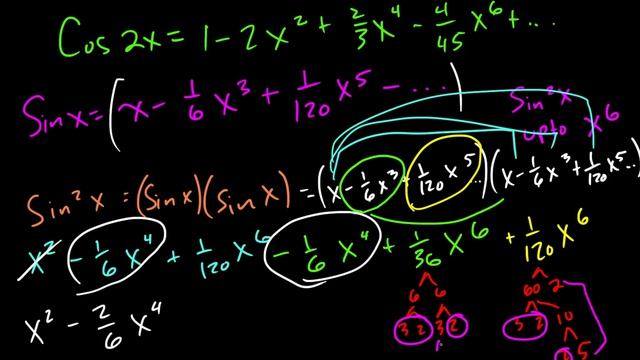 Cos 2x = 1 - 2x² + 2/3 x⁴ - 4/45 x⁶ + ...
Sin x = (x - 1/6 x³ + 1/120 x⁵ - ...)
Sin²x
up to x⁶
Sin²x = (Sin x)(Sin x) = (x - 1/6 x³ + 1/120 x⁵ ...)(x - 1/6 x³ + 1/120 x⁵ ...)
x² - 1/6 x⁴ + 1/120 x⁶ - 1/6 x⁴ + 1/36 x⁶ + 1/120 x⁶
6 6 60 2
3 2 3 2 3 2 10
x² - 2/6 x⁴
5